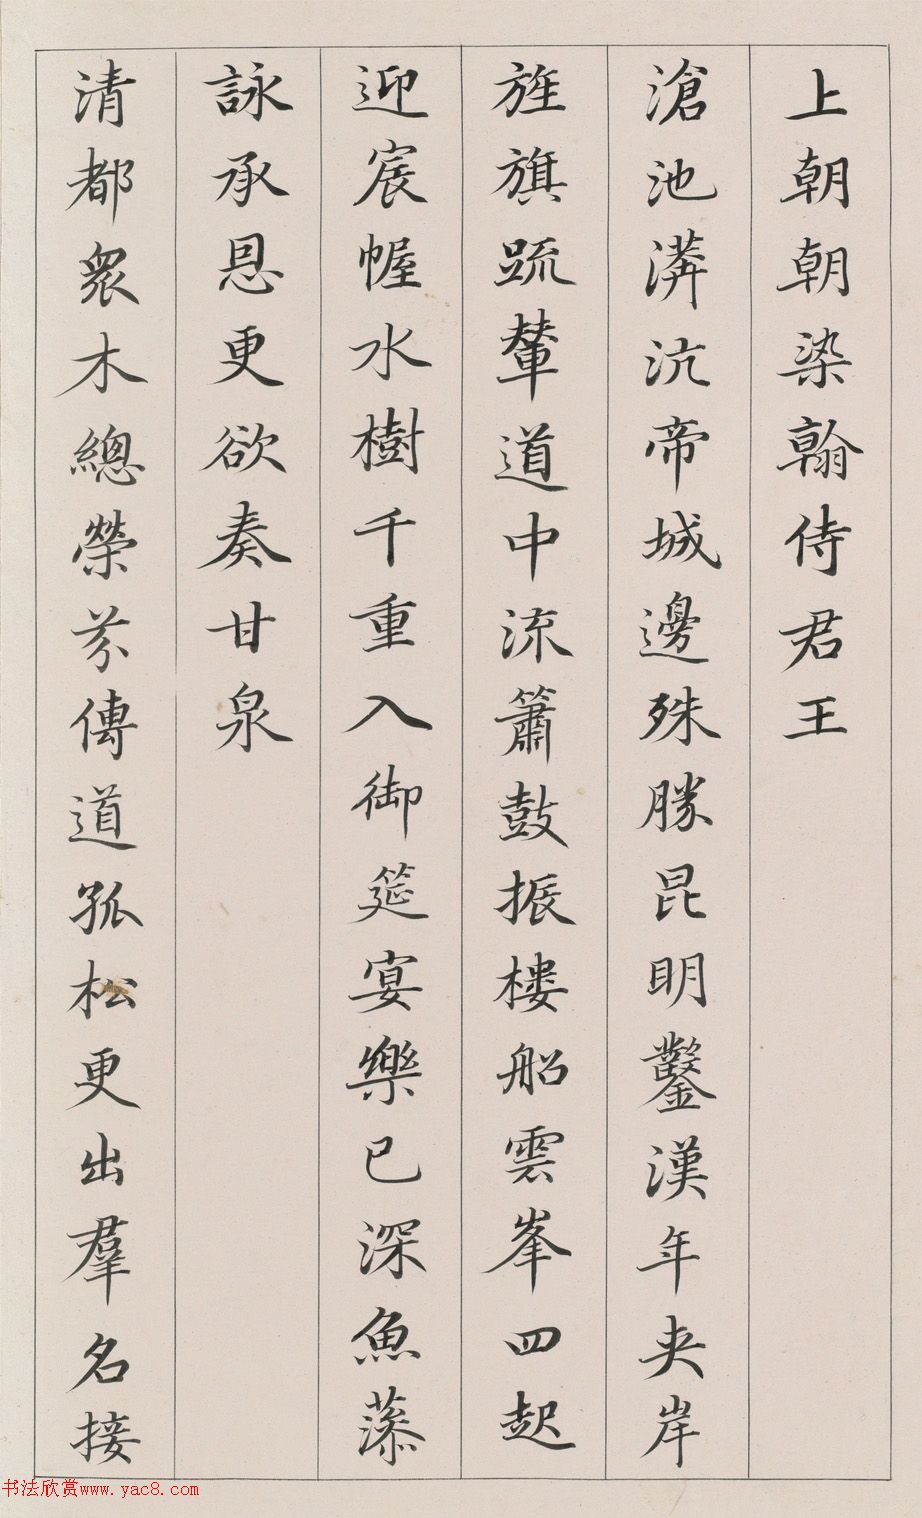 上朝朝染翰侍君王
滄池漭沆帝城邊殊勝昆明鑿漢年夾岸
旌旗疏輦道中流簫鼓振樓船雲峯四起
迎宸幄水樹千重入御筵宴樂已深魚藻
詠承恩更欲奏甘泉
清都衆木總榮芬傳道孤松更出羣名接
书法欣赏www.yac8.com